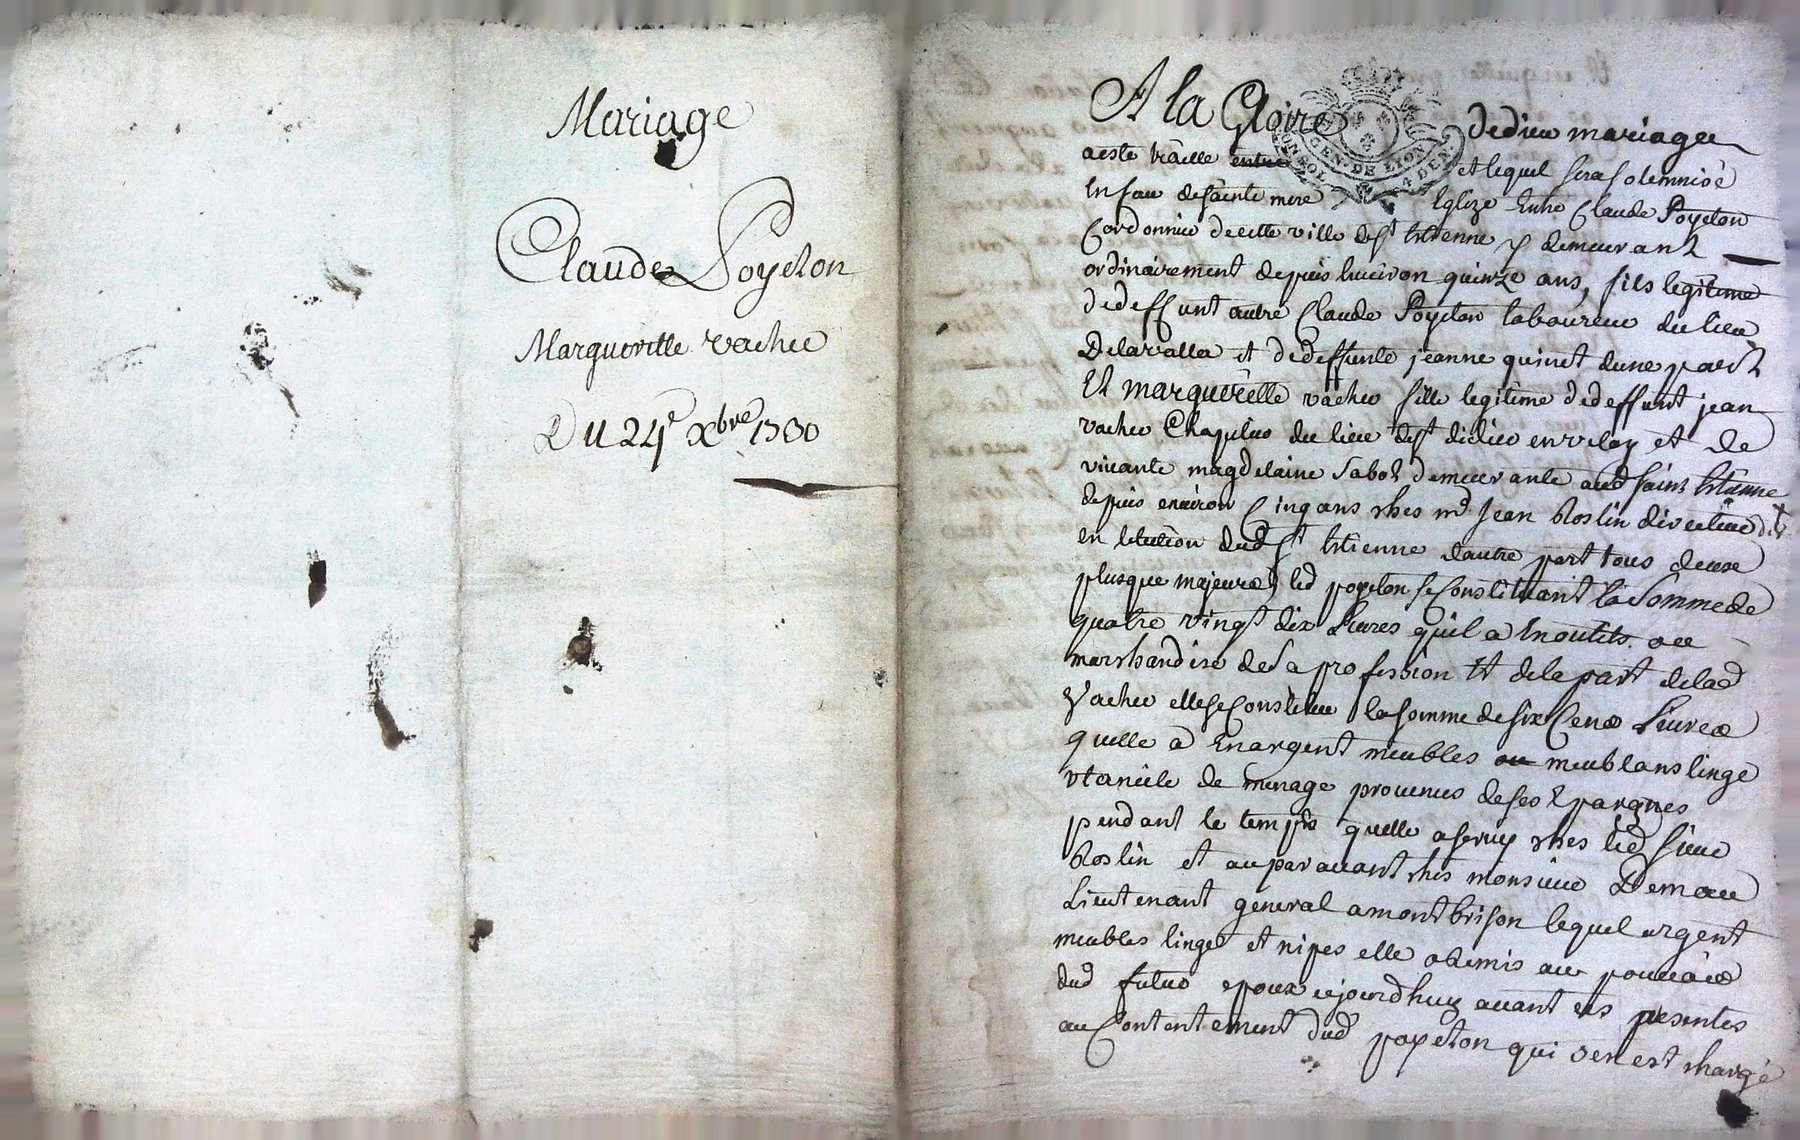 Mariage
Claude Poyeton
Margueritte vacher
Du 24e Xbre 1730
A la Gloire de dieu mariage
a este traitte entre et lequel sera solemnisé
En face de sainte mere Eglize Entre Claude Poyeton
Cordonnier de cette ville de st Estienne y demeurant
ordinairement depuis Environ quinze ans, fils legitime
de deffunt autre Claude Poyeton laboureur du lieu
Delavalla et de deffunte jeanne quinet dune part
Et marguerette vacher fille legitime de deffunt jean
vacher Chapelus du lieu de st didier en velay et de
vivante magdelaine sabot demeurante aud saint Estienne
depuis environ Cinq ans ches mr Jean Roslin directeur
en L'election dud st Estienne dautre part tous deux
plusque majeurs, led poyeton se Constituant la somme de
quatre vingt dix Livres quil a En outils ou
marchandise de sa profession Et de la part de lad
Vacher elle se Constitue la somme de six Cens Livres
quelle a En argent meubles ou meublans linge
vtancile de menage provenus de ses Epargnes
pendant le temps quelle a servy ches led sieur
Roslin et auparavant ches monsieur
Lieutenant general a montbrison lequel argent
meubles linges et nipes elle a remis au pouvoir
dud futur epoux cejourdhuy avant ces presentes
au Contentement dud poyeton qui sen est chargé
GEN. DE LION